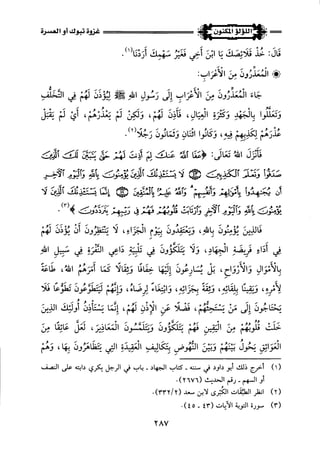 غزوة تبوك أو العسرة
اللؤلؤ المكنون
قال: خُذ فَلَائِصَكَ يا ابنَ أخي فَغَيْرَ سَهْمِكَ أَرَدْنَا(١).
المُعَذِّرُونَ مِنَ الأعْرَابِ:
جاءَ المُعَذِّرُونَ مِنَ الأعْرَابِ إلى رَسُولِ اللهِ ﷺ لِيُؤْذَنَ لهم في التَّخَلُّفِ
بِالعِلَلِ، وبِالجَهْدِ، وكَثْرَةِ العِيَالِ، فَأَذِنَ لهم، ولَكِنْ لَمْ يَعْذُرْهُمْ، أي لم يَقْبَلْ
عُذْرَهُمْ لِكَذِبِهِمْ فيه، وكَانُوا اثْنَانِ وثَمَانُونَ رَجُلًا(٢).
فَأَنْزَلَ اللهُ تَعَالى: ﴿عَفَا اللَّهُ عَنكَ لِمَ أَذِنتَ لَهُمْ حَتَّىٰ يَتَبَيَّنَ لَكَ الَّذِينَ
صَدَقُوا وَتَعْلَمَ الْكَاذِبِينَ ٤٣ لَا يَسْتَأْذِنُكَ الَّذِينَ يُؤْمِنُونَ بِاللَّهِ وَالْيَوْمِ الْآخِرِ
أَن يُجَاهِدُوا بِأَمْوَالِهِمْ وَأَنفُسِهِمْ وَاللَّهُ عَلِيمٌ بِالْمُتَّقِينَ ٤٤ إِنَّمَا يَسْتَأْذِنُكَ الَّذِينَ لَا
يُؤْمِنُونَ بِاللَّهِ وَالْيَوْمِ الْآخِرِ وَارْتَابَتْ قُلُوبُهُمْ فَهُمْ فِي رَيْبِهِمْ يَتَرَدَّدُونَ﴾(٣).
فالذينَ يُؤْمِنُونَ بِاللهِ، ويَعْتَقِدُونَ بِيَوْمِ الجَزَاءِ، لا يَنْتَظِرُونَ أنْ يُؤْذَنَ لَهُمْ
في أَدَاءِ فَرِيضَةِ الجِهَادِ، ولا يَتَلَكَّؤُونَ في تَلْبِيَةِ دَاعِي النَّفْرَةِ في سَبِيلِ اللهِ
بِالأَمْوَالِ والأَرْوَاحِ، بَلْ يُسَارِعُونَ إليها خِفَافًا وثِقَالًا كَمَا أَمَرَهُمُ اللهُ، طَاعَةً
لِأَمْرِهِ، ويَقِينًا بِلِقَائِهِ، وثِقَةً بِجَزَائِهِ، وابْتِغَاءً لِرِضَاهُ، وإنَّهُمْ لَيَتَطَوَّعُونَ تَطَوُّعًا فَلَا
يَحْتَاجُونَ إلى مَنْ يَسْتَحِثُّهُمْ، فَضْلًا عَنِ الإِذْنِ لَهُمْ، إنَّمَا يَسْتَأْذِنُ أُولَئِكَ الذينَ
خَلَتْ قُلُوبُهُمْ مِنَ اليَقِينِ فَهُمْ يَتَلَكَّؤُونَ ويَتَلَمَّسُونَ المَعَاذِيرَ، لَعَلَّ عَائِقًا مِنَ
العَوَائِقِ يَحُولُ بَيْنَهُمْ وبَيْنَ النُّهُوضِ بِتَكَالِيفِ العَقِيدَةِ التي يَتَظَاهَرُونَ بها، وهُمْ
(١) أخرج ذلك أبو داود في سننه - كتاب الجهاد - باب في الرجل يكري دابته على النصف
أو السهم - رقم الحديث (٢٦٧٦).
(٢) انظر الطبقات الكبرى لابن سعد (٣٣٢/٢).
(٣) سورة التوبة الآيات (٤٣ - ٤٥).
٢٨٧